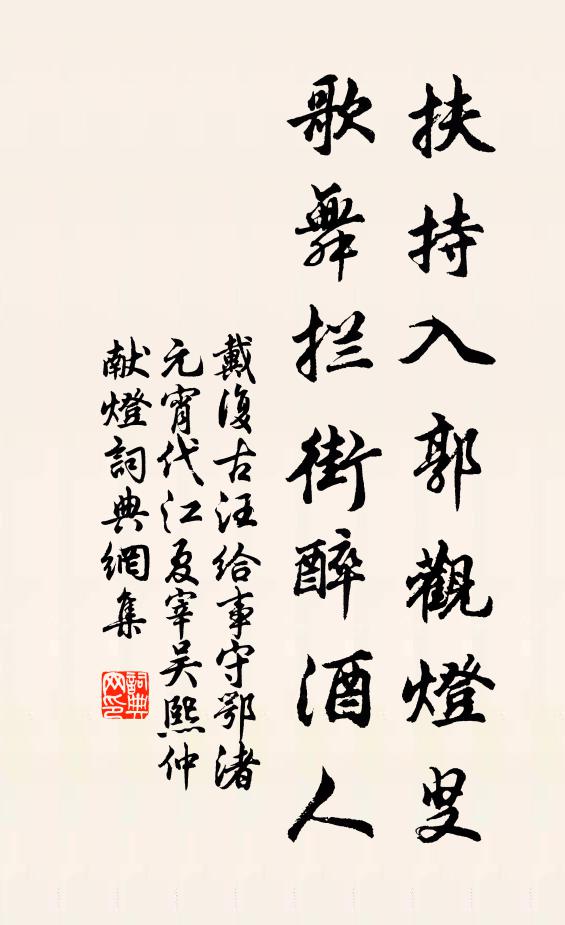 扶持入郭觀燈叟
歌舞拦街醉酒人
戴復古汪給事守鄂渚
元宵代江夏宰吴熙仲
献燈詞典網集
詞典网印